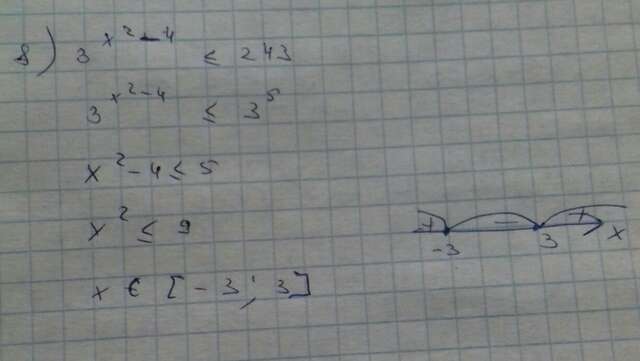 8) 3^(x²-4) ≤ 243
3^(x²-4) ≤ 3⁵
x² - 4 ≤ 5
x² ≤ 9
+ - +
-3 3 x
x ∈ [-3; 3]